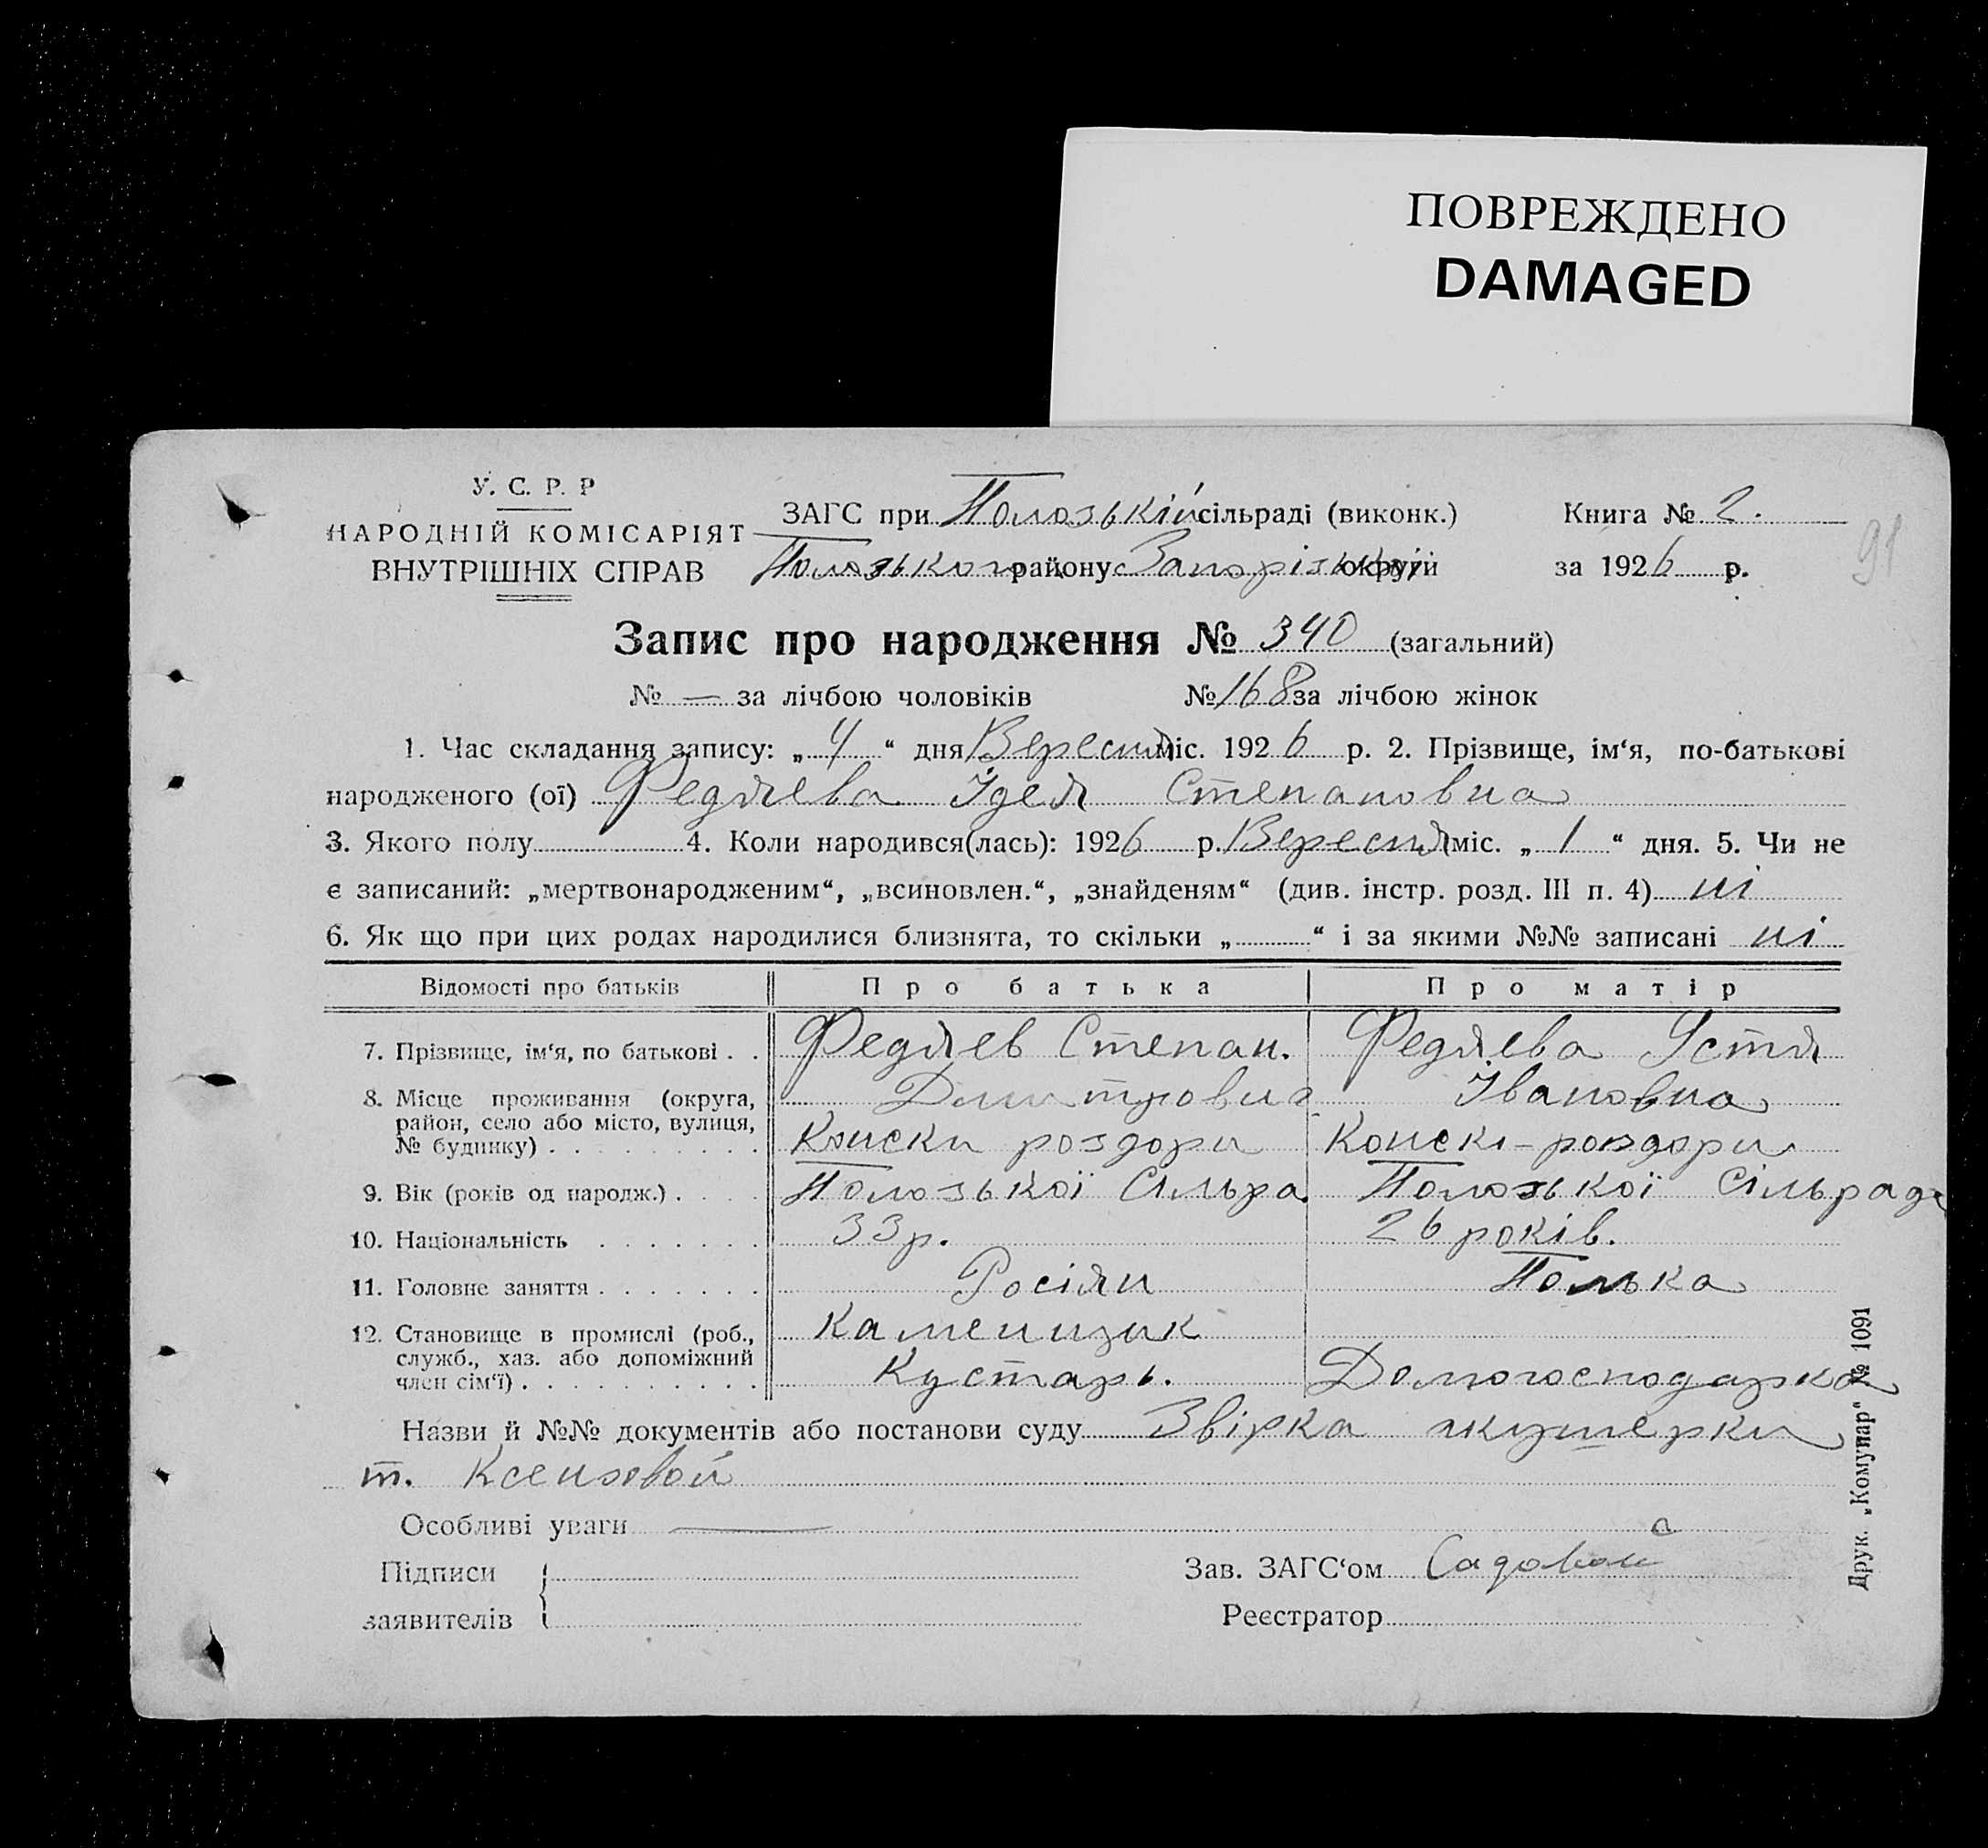 ПОВРЕЖДЕНО
DAMAGED
У. С. Р. Р
НАРОДНІЙ КОМІСАРІЯТ
ВНУТРІШНІХ СПРАВ
ЗАГС при Пологзькій сільраді (виконк.)
Пологзького району Запорізької округи
Книга № 2.
за 1926 р.
91
Запис про народження № 340 (загальний)
№ — за лічбою чоловіків № 168 за лічбою жінок
1. Час складання запису: „ 4 “ дня Вересня міс. 1926 р. 2. Прізвище, ім‘я, по-батькові
народженого (ої) Федяева Ідея Степановна
3. Якого полу 4. Коли народився(лась): 1926 р. Вересня міс. „ 1 “ дня. 5. Чи не
є записаний: „мертвонародженим“, „всиновлен.“, „знайденям“ (див. інстр. розд. III п. 4) ні
6. Як що при цих родах народилися близнята, то скільки „ “ і за якими №№ записані ні
Відомості про батьків Про батька Про матір
7. Прізвище, ім‘я, по батькові . . Федяев Степан. Федяева Устя
8. Місце проживання (округа, район, село або місто, вулиця, № будинку) Дмитрович Івановна
Конски роздори Конскі-роздори
9. Вік (років од народж.) Полозької Сільра. Полозької Сільради
10. Національність 33 р. 26 років.
11. Головне заняття Росіян Полька
12. Становище в промислі (роб., служб., хаз. або допоміжний член сім‘ї) Каменщик
Кустарь. Домогосподарка
Назви й №№ документів або постанови суду Звірка акушерки
т. Ксензовой
Особливі уваги —
Підписи
заявителів
Зав. ЗАГС‘ом
Реєстратор
Друк. „Комунар“ № 1091